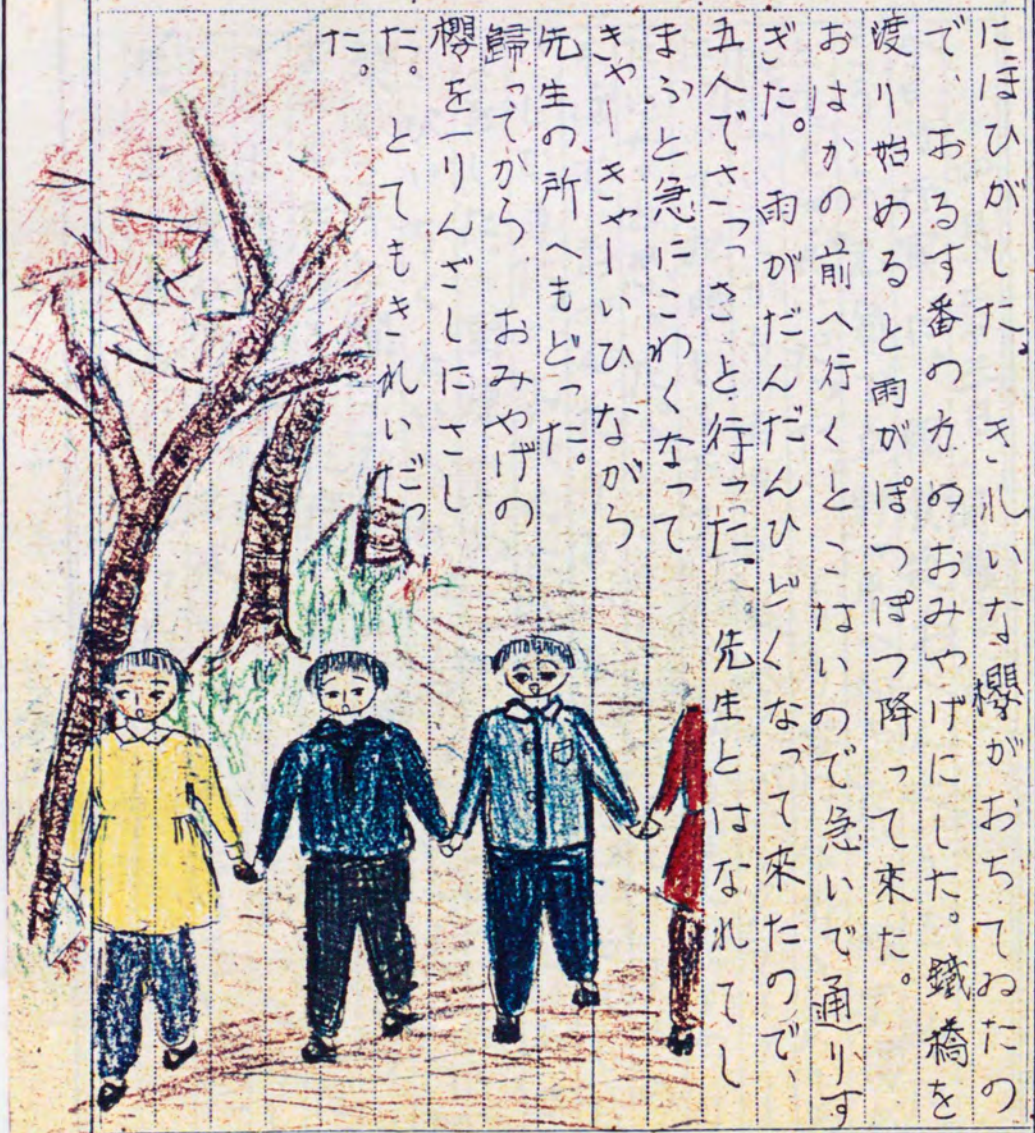 にほひがした。きれいな櫻がおちてゐたの
で、おるす番の方のおみやげにした。鐵橋を
渡り始めると雨がぽつぽつ降って来た。
おはかの前へ行くとこはいので急いで通りす
ぎた。雨がだんだんひどくなって來たので、
五人でさっさと行った。先生とはなれてし
まふと急にこわくなって
きゃーきゃーいひながら
先生の所へもどった。
歸ってから おみやげの
櫻を一りんざしにさし
た。とてもきれいだっ
た。